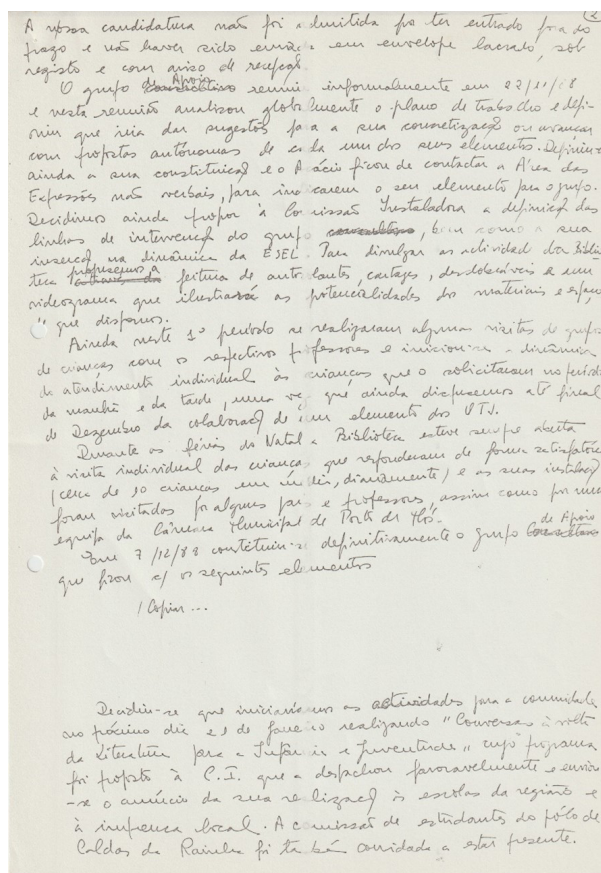 2
A nossa candidatura não foi admitida por ter entrado fora do
prazo e não haver sido enviada em envelope lacrado, sob
registo e com aviso de recepção.
O grupo de Apoio reuniu informalmente em 22/11/88
e nesta reunião analizou globalmente o plano de trabalho e defi-
niu que iria dar sugestões para a sua concretização ou avançar
com propostas autónomas de cada um dos seus elementos. Definiu-se
ainda a sua constituição e o Acácio ficou de contactar a Área das
Expressões não verbais, para indicarem o seu elemento para o grupo.
Decidimos ainda propor à Comissão Instaladora a definição das
linhas de intervenção do grupo, bem como a sua
inserção na dinâmica da ESEL. Para divulgar as actividad da Biblio
teca propusemos a feitura de auto-colantes, cartazes, desdobráveis e um
videograma que ilustrará as potencialidades dos materiais e espaço
que dispomos.
Ainda neste 1º período se realizaram algumas visitas de grupos
de crianças com os respectivos professores e iniciou-se a dinâmica
do atendimento individual às crianças que o solicitaram no período
da manhã e da tarde, uma vez que ainda dispusemos até final
de Dezembro da colaboração de um elemento dos OTJ.
Durante as férias do Natal a Biblioteca esteve sempre aberta
à visita individual das crianças que responderam de forma satisfatória
(cerca de 10 crianças em média, diariamente) e as suas instalações
foram visitadas por alguns pais e professores, assim como por uma
equipa da Câmara Municipal de Porto de Mós.
Em 7/12/88 constituiu-se definitivamente o grupo de Apoio
que ficou c/ os seguintes elementos
/Copiar...
Decidiu-se que iniciaríamos as actividades para a comunidade
no próximo dia de Janeiro realizando "Conversas à volta
da Literatura para a Infância e Juventude" cujo programa
foi proposto à C.I. que a despachou favoravelmente e enviou
-se o anúncio da sua realização às escolas da região e
à imprensa local. A comissão de estudantes do pólo de
Caldas da Rainha foi também convidada a estar presente.